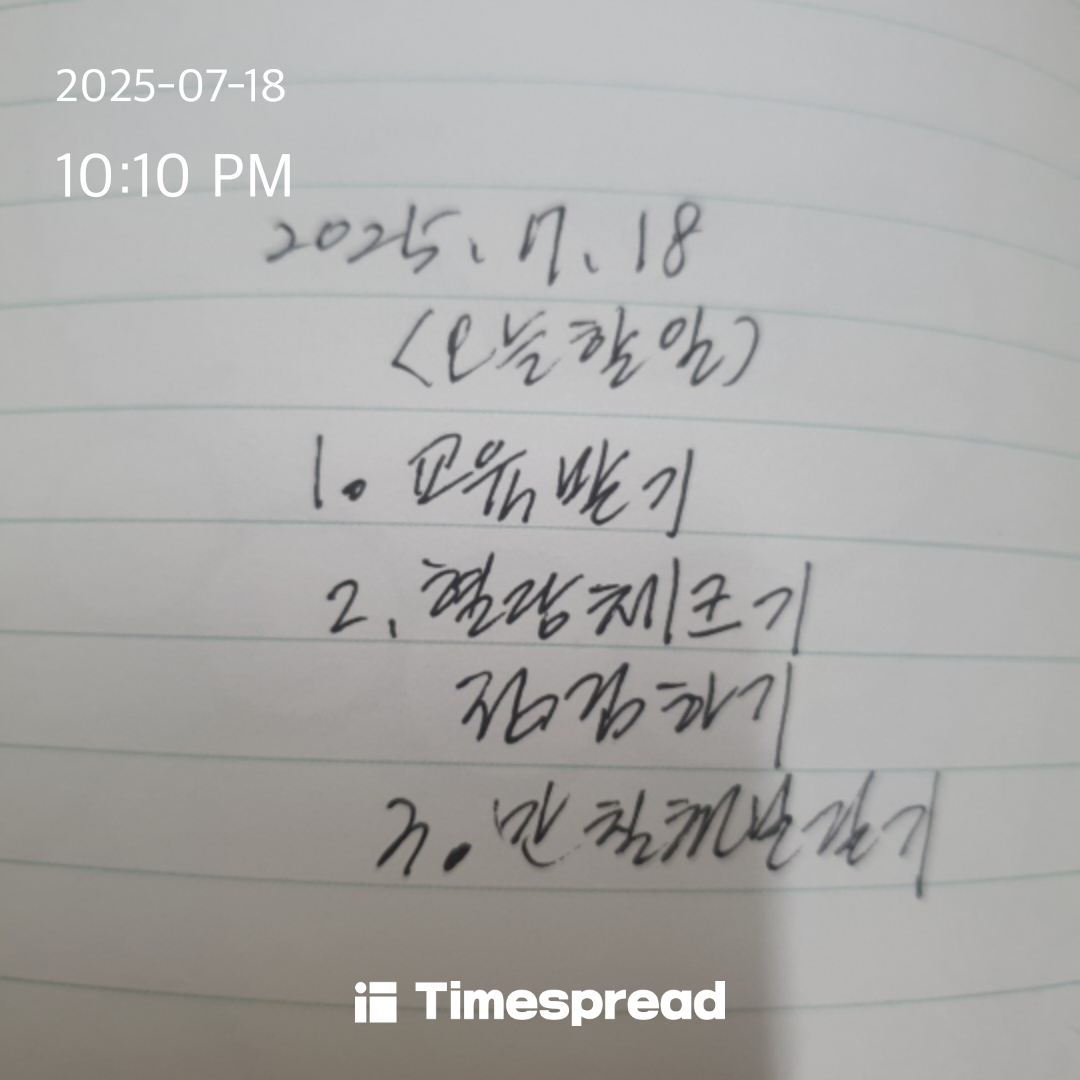 2025-07-18
10:10 PM
2025. 7. 18
<오늘 할 일>
1. 교육 받기
2. 혈당체크기
점검하기
3. 만
Timespread